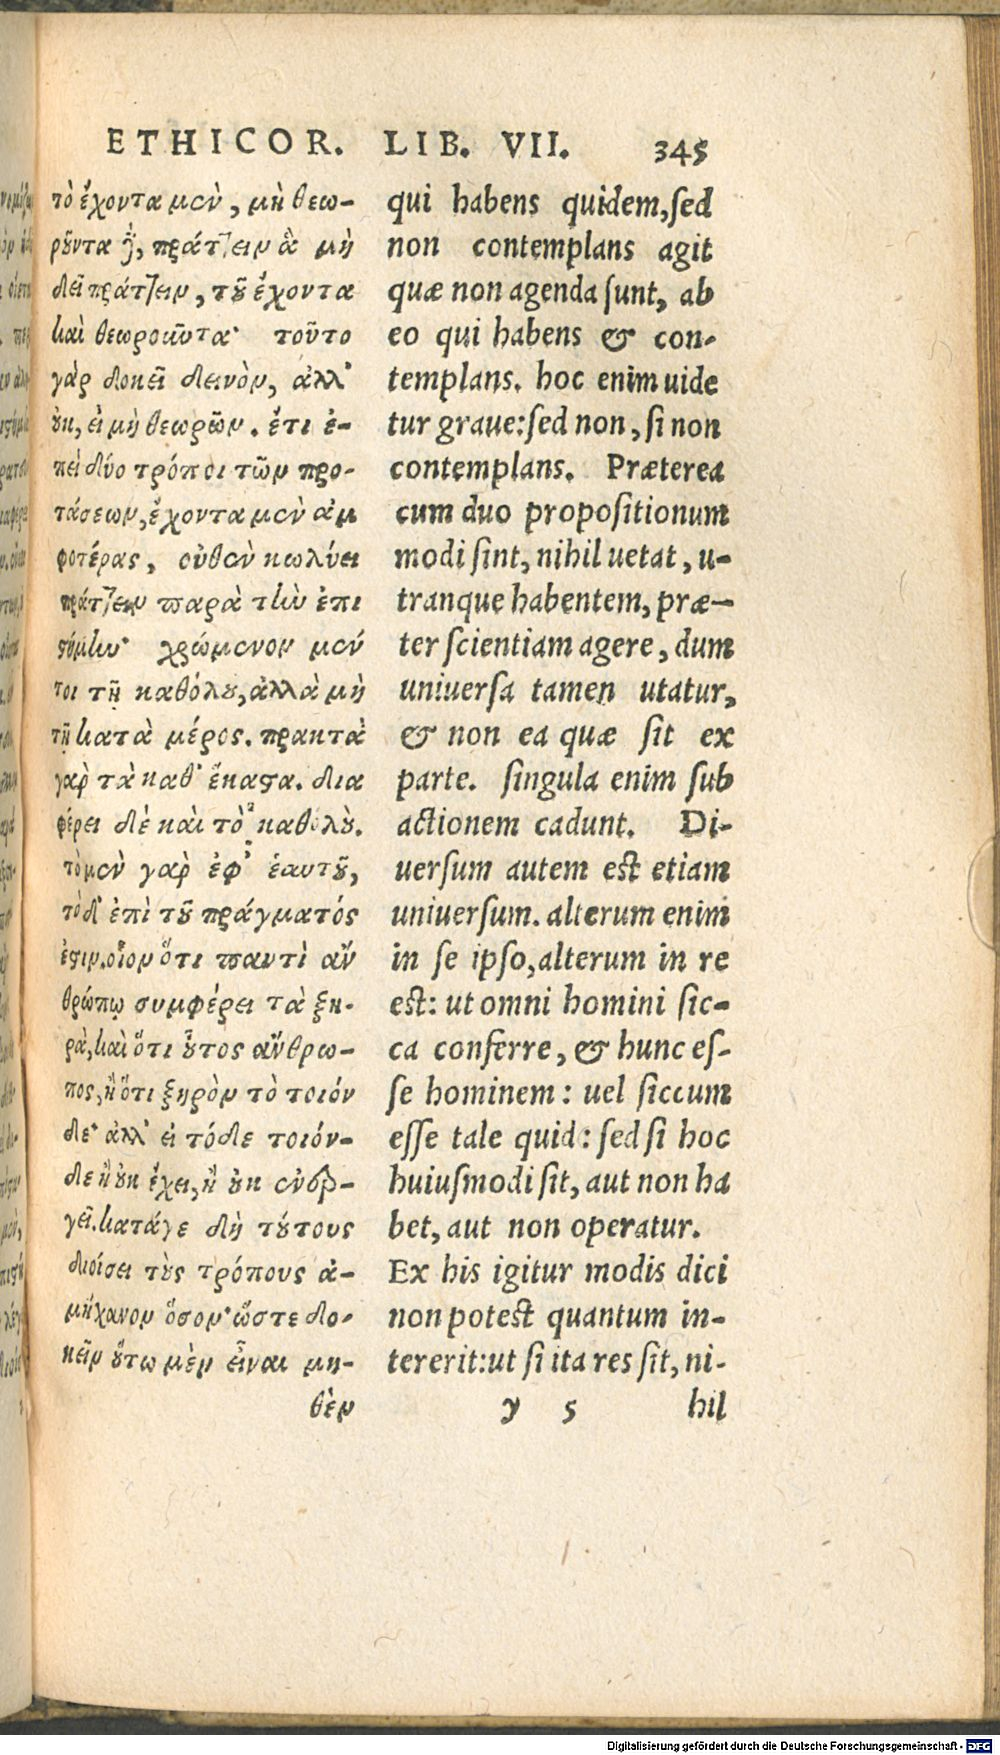 ETHICOR. LIB. VII. 345
τὸ ἔχοντα μὲν, μὴ θεω-
ροῦντα δὲ, πράττειν ἃ μὴ
δεῖ πράττειν, τοῦ ἔχοντα
καὶ θεωροῦντα· τοῦτο
γὰρ δοκεῖ δεινὸν, ἀλλ'
οὐκ, εἰ μὴ θεωρῶν. ἔτι ἐ-
πεὶ δύο τρόποι τῶν προ-
τάσεων, ἔχοντα μὲν ἀμ
φοτέρας, οὐθὲν κωλύει
πράττειν παρὰ τὴν ἐπι
στήμην· χρώμενον μέν
τοι τῇ καθόλου, ἀλλὰ μὴ
τῇ κατὰ μέρος. πρακτὰ
γὰρ τὰ καθ' ἕκαστα. δια
φέρει δὲ καὶ τὸ καθόλου.
τὸ μὲν γὰρ ἐφ' ἑαυτοῦ,
τὸ δ' ἐπὶ τοῦ πράγματός
ἐστιν. οἷον ὅτι παντὶ ἀν
θρώπῳ συμφέρει τὰ ξη-
ρὰ, καὶ ὅτι οὗτος ἄνθρω-
πος, ἢ ὅτι ξηρὸν τὸ τοιόν
δε· ἀλλ' εἰ τόδε τοιόν-
δε ἢ οὐκ ἔχει, ἢ οὐκ ἐνερ-
γεῖ. κατάγε δὴ τούτους
διοίσει τοὺς τρόπους ἀ-
μήχανον ὅσον· ὥστε δο-
κεῖν οὕτω μὲν εἶναι μη-
θὲν
qui habens quidem, sed
non contemplans agit
quæ non agenda sunt, ab
eo qui habens & con-
templans. hoc enim uide
tur graue: sed non, si non
contemplans. Præterea
cum duo propositionum
modi sint, nihil uetat, u-
tranque habentem, præ-
ter scientiam agere, dum
uniuersa tamen utatur,
& non ea quæ sit ex
parte. singula enim sub
actionem cadunt. Di-
uersum autem est etiam
uniuersum. alterum enim
in se ipso, alterum in re
est: ut omni homini sic-
ca conferre, & hunc es-
se hominem: uel siccum
esse tale quid: sed si hoc
huiusmodi sit, aut non ha
bet, aut non operatur.
Ex his igitur modis dici
non potest quantum in-
tererit: ut si ita res sit, ni-
y 5 hil
Digitalisierung gefördert durch die Deutsche Forschungsgemeinschaft - DFG